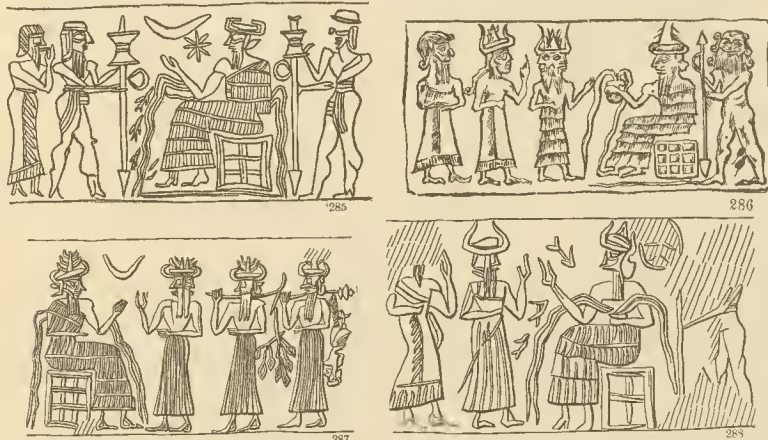 285
286
287
288